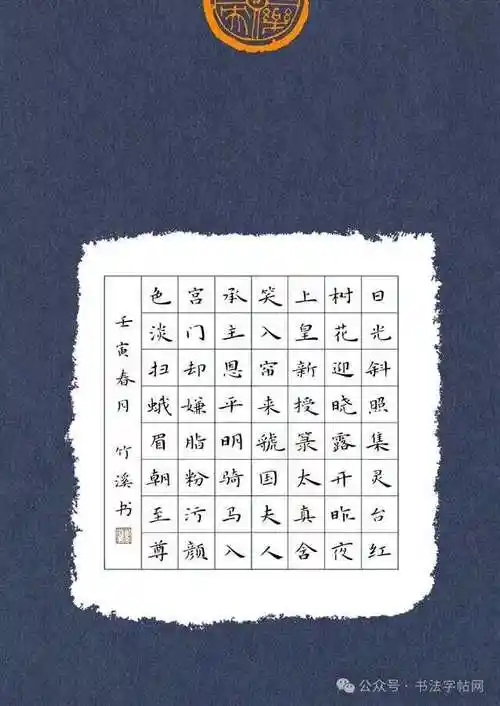 日光斜照集灵台红
树花迎晓露开昨夜
上皇新授箓太真含
笑入帘来虢国夫人
承主恩平明骑马入
宫门却嫌脂粉污颜
色淡扫蛾眉朝至尊
壬寅春月 竹溪书
公众号·书法字帖网